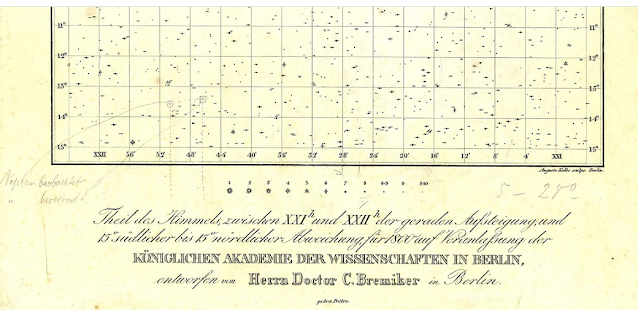 11° 11°
12° 12°
13° 13°
14° 14°
15° 15°
XXII 56' 52' 48' 44' 40' 36' 32' 28' 24' 20' 16' 12' 8' 4' XXI
Auguste Kolbe sculps. Berlin.
Neptun beobachtet
" berechnet
1 2 3 4 5 6 7 8 8·9 9 9·10
Theil des Himmels, zwischen XXIʰ und XXIIʰ der geraden Aufsteigung, und
15° südlicher bis 15° nördlicher Abweichung, für 1800 auf Veranlassung der
KÖNIGLICHEN AKADEMIE DER WISSENSCHAFTEN IN BERLIN,
entworfen von Herrn Doctor C. Bremiker in Berlin.